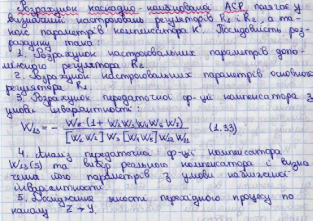 Розрахунок каскадно-комбінованої АСР полягає у
визначенні настроювань регуляторів R₂ і R₁, а та-
кож параметрів компенсатора К. Послідовність роз-
рахунку така:
1. Розрахунок настроювальних параметрів допо-
міжного регулятора R₂.
2. Розрахунок настроювальних параметрів основного
регулятора R₁
3. Розрахунок передаточної ф-ції компенсатора з
умови інваріантності:
(1.33)
4. Аналіз передаточної ф-ції компенсатора
W₁₃(s) та вибір реального компенсатора с визна
чення його параметрів з умови наближеної
інваріантності
5. Дослідження якості перехідного процесу по
каналу Z → Y.